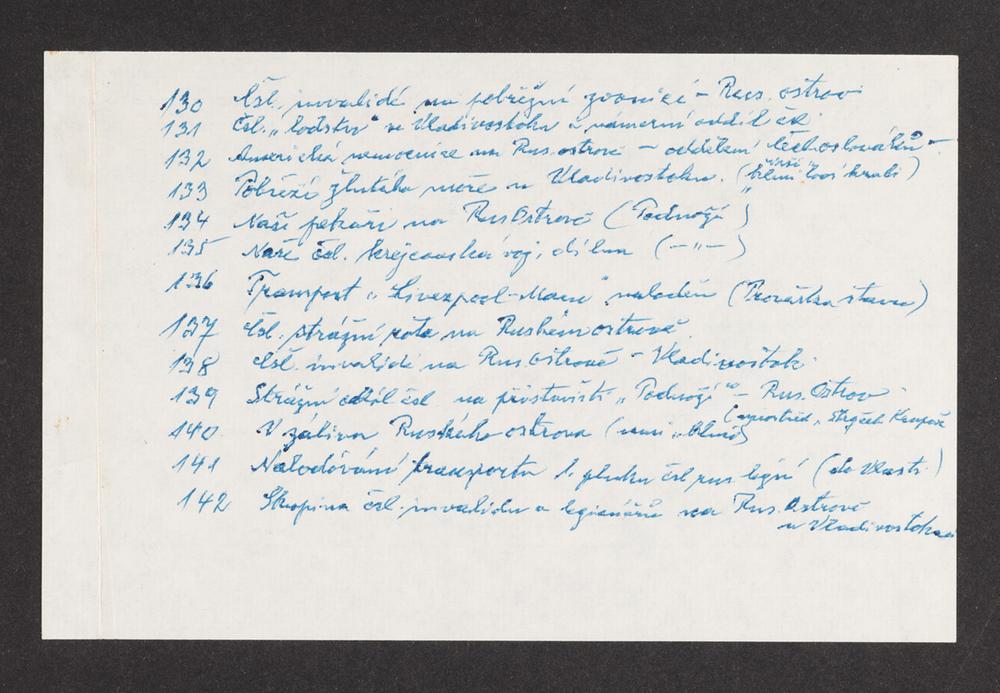 130 Čsl. invalidé na pobřežní zvonici - Rus. ostrov.
131 Čsl. „loďstvo" ve Vladivostoku a námorní oddíl čs.
132 Americká nemocnice na Rus. ostrově - oddělení Čechoslováků -
133 Pobřeží žlutého moře u Vladivostoku. (loví krabi)
134 Naši pekaři na Rus. Ostrově (Podnoží)
135 Naše čsl. krejčovská voj. dílna (-"-)
136 Transport „Liverpool-Maru" naloděn (Procházka stavu)
137 Čsl. strážní rota na Ruském ostrově
138 Čsl. invalidé na Rus. ostrově - Vladivostok.
139 Strážní oddíl čsl na přístavišti „Podnoží" - Rus. Ostrov
(uprostřed „Strýček Kropáč
140. V zálivu Ruského ostrova
141 Naloďování transportu 1. pluku čsl rus legií (do Vlasti.)
142 Skupina čsl. invalidu a legionářů na Rus. Ostrově
u Vladivostoku